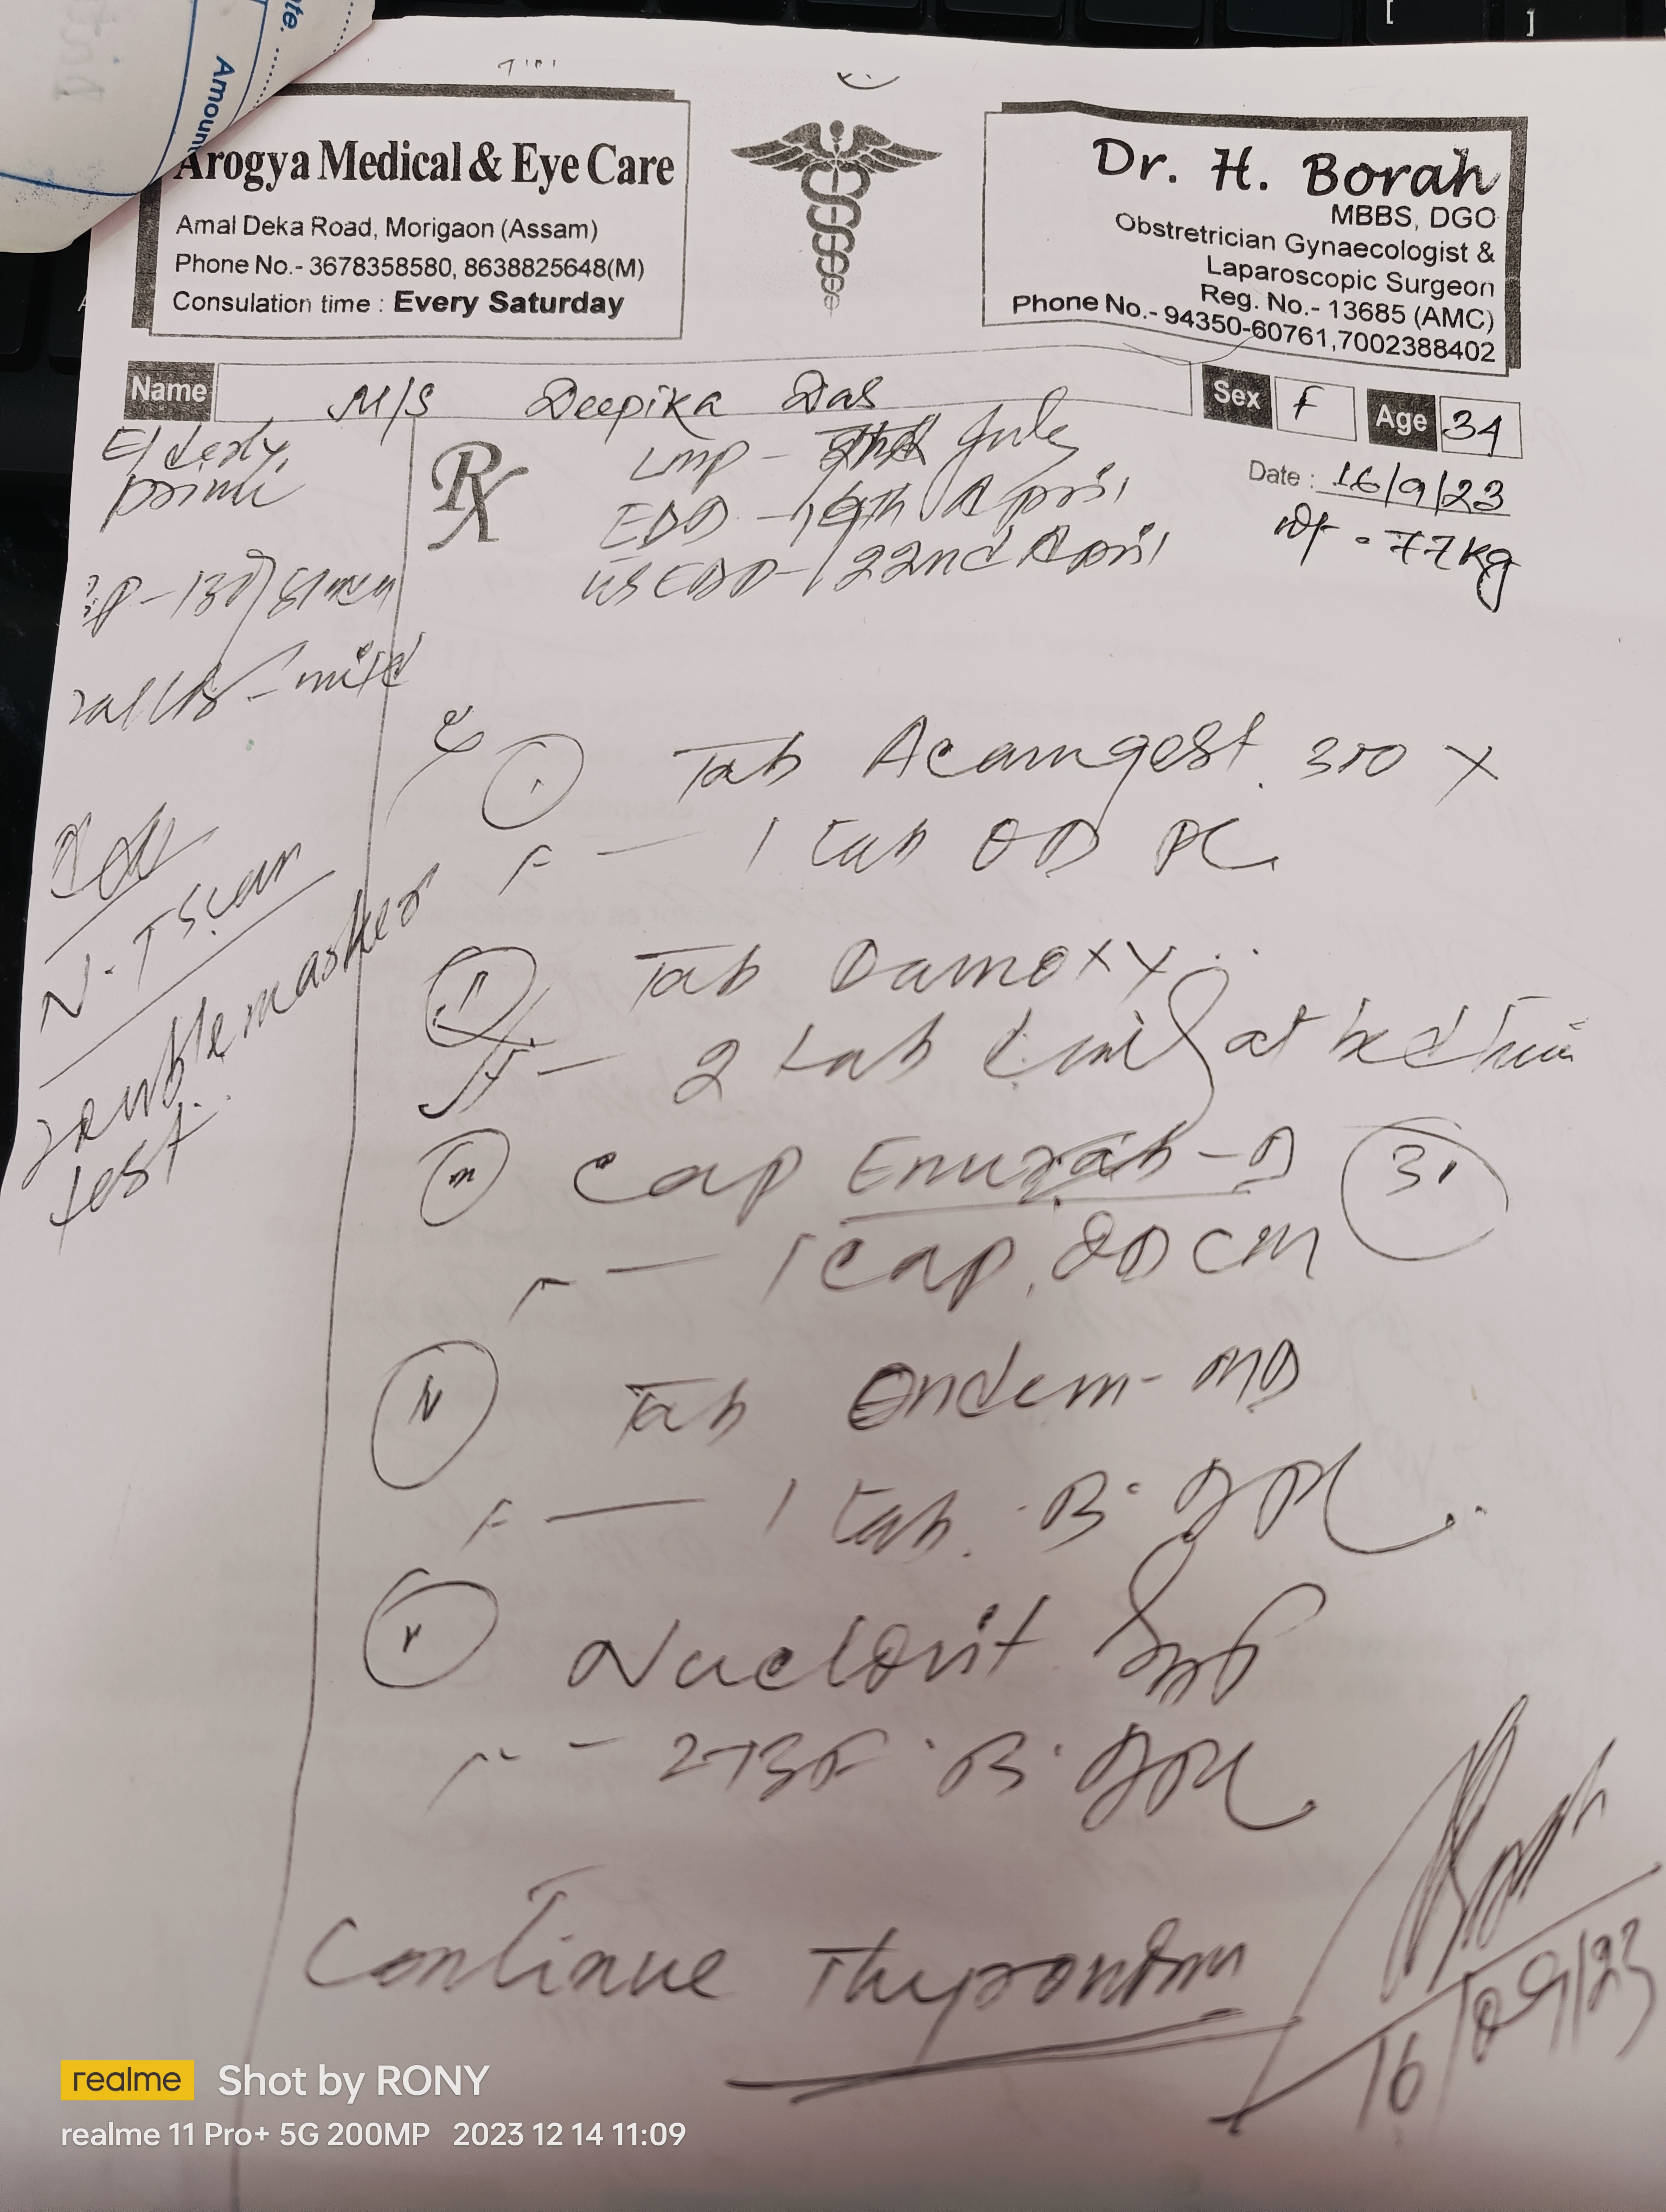 Amount
Arogya Medical & Eye Care
Amal Deka Road, Morigaon (Assam)
Phone No.- 3678358580, 8638825648(M)
Consulation time : Every Saturday
Dr. H. Borah
MBBS, DGO
Obstretrician Gynaecologist &
Laparoscopic Surgeon
Reg. No.- 13685 (AMC)
Phone No.- 94350-60761,7002388402
Name M/S Deepika Das Sex F Age 34
Date : 16/9/23
Wt - 77kg
Elderly
primi
LMP - July
EDD - 19th April
US EDD - 22nd April
mild
N.T Scan
Double marker
test
Rx
Tab Acamgest 300 X
1 tab OD PC
Tab Damoxy
2 tab at bed time
Cap 31
1 cap OD CM
Tab Ondem-MD
1 tab B.D
Syp
2 TSF B.D
Continue
16/09/23
realme Shot by RONY
realme 11 Pro+ 5G 200MP 2023 12 14 11:09